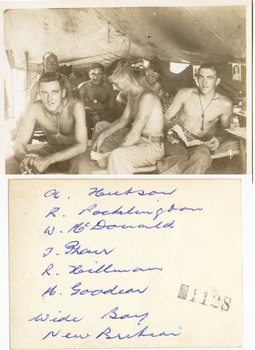 A. Hutson
R. Pocklington
W. McDonald
J. Phair
R. Hillman
H. Goodear
Wide Bay
New Britain
1128